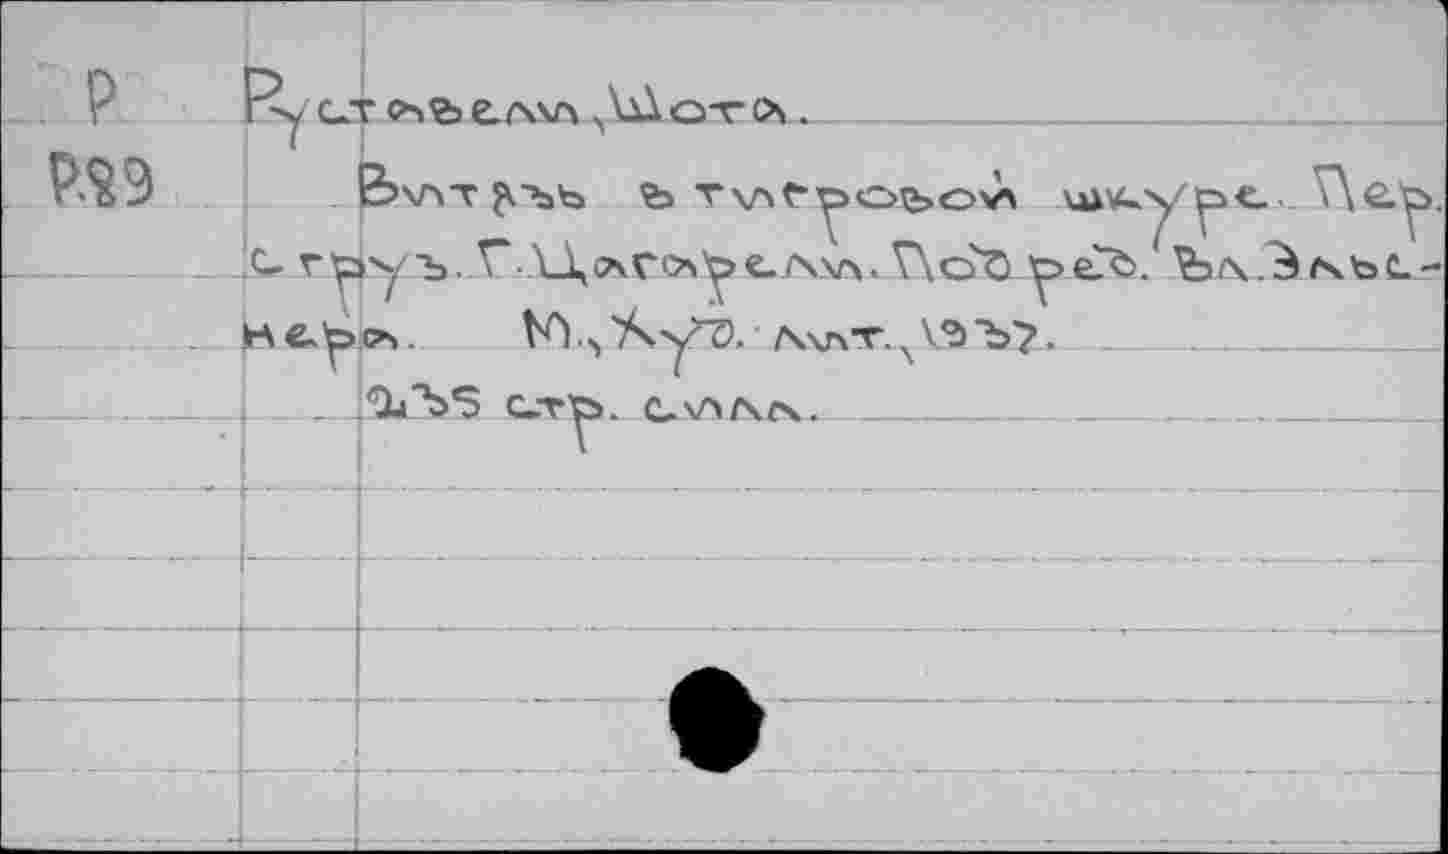 Р Руставели, Шота.
Р.89 Витязь в тигровой шкуре. Пер.
с груз. Г. Цагарели. Под ред. Вл. Эльс-
нера. М., Худ. лит., 1937.
235 стр. с илл.